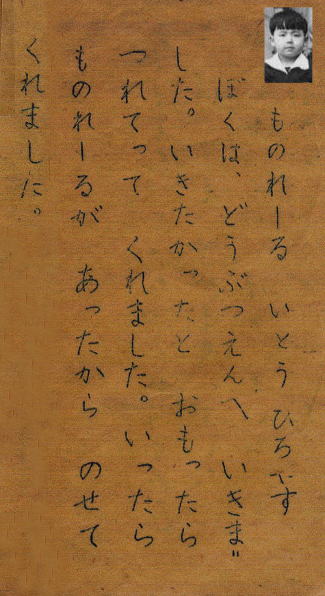 ものれーる いとう ひろやす
ぼくは、どうぶつえんへ いきま
した。いきたかったと おもったら
つれてって くれました。いったら
ものれーるが あったから のせて
くれました。